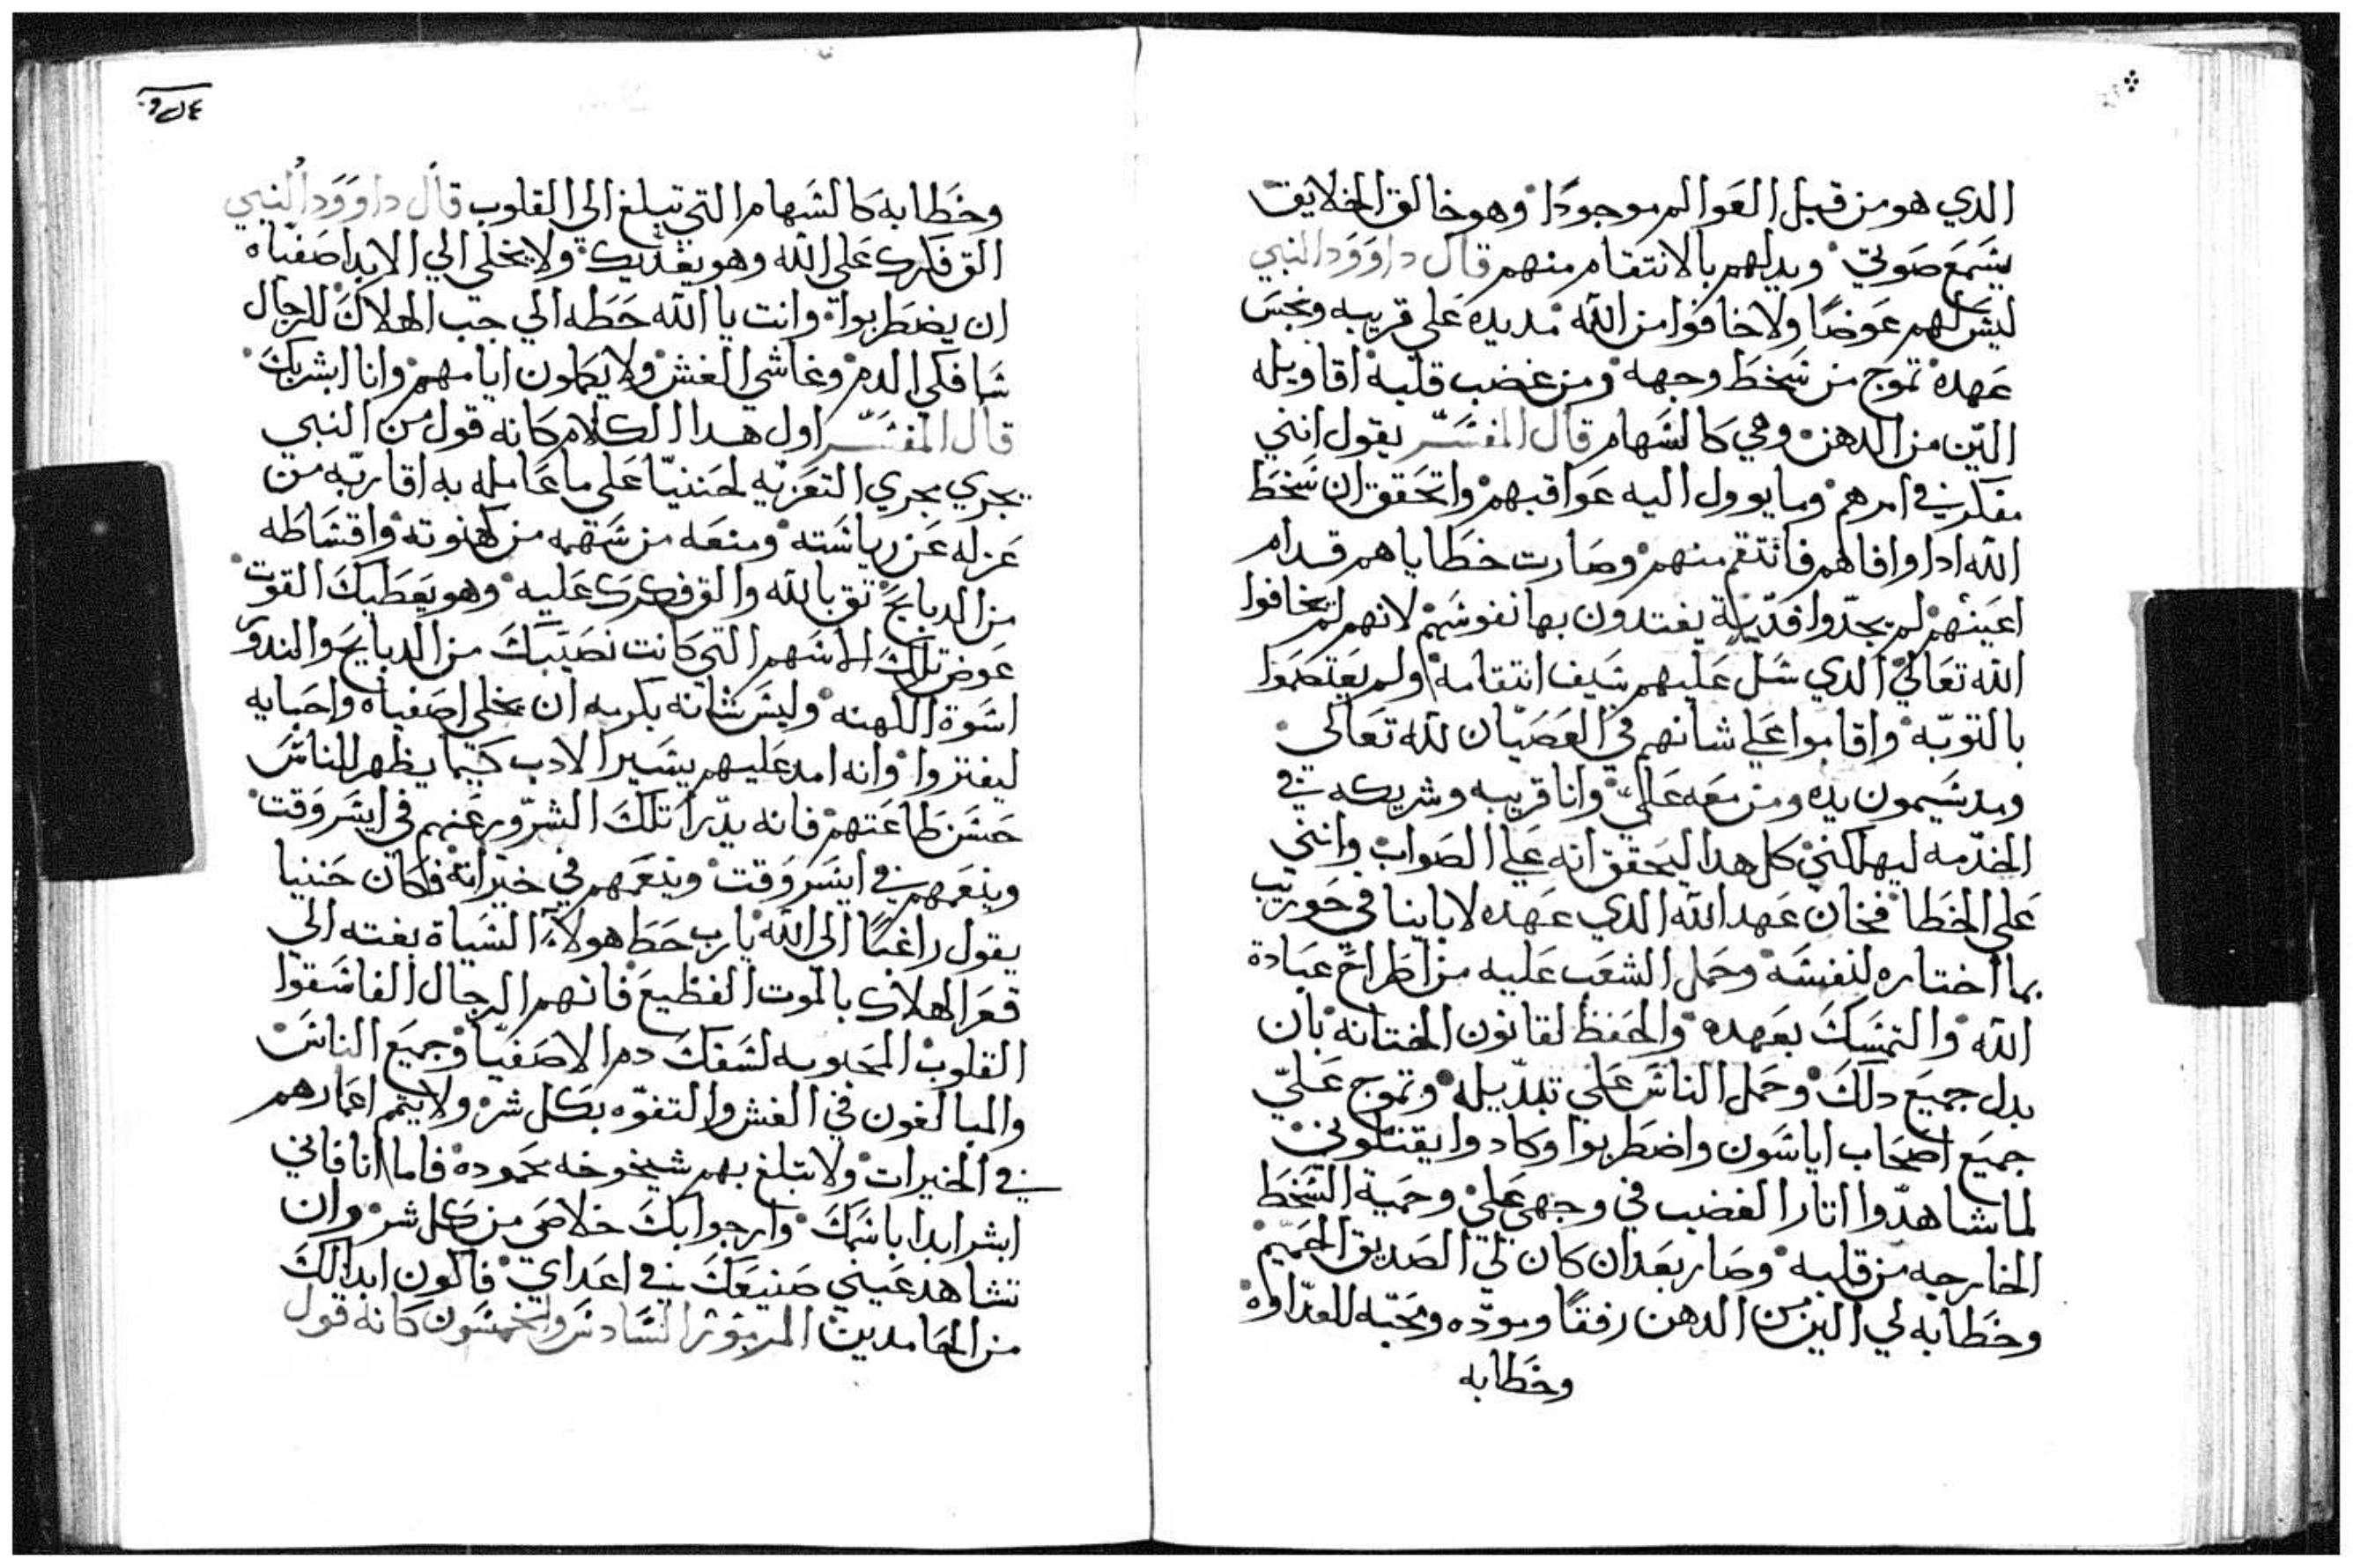 الدي هو من قبل العوالم موجودًا وهو خالق الخلايق
يسمع صوتي ويدلهم بالانتقام منهم قال داوود النبي
ليس لهم عوضًا ولا خافوا من الله مد يده على قريبه ونجس
عهده تموج من سخط وجهه ومن غضب قلبه اقاويله
الين من الدهن وهي كالسهام قال المفسر يقول انني
مفكر في امرهم وما يوول اليه عواقبهم واتحقق ان سخط
الله ادا وافاهم فانتقم منهم وصارت خطاياهم قدام
اعينهم لم يجدوا فدية يفتدون بها نفوسهم لانهم لم يخافوا
الله تعالي الدي سل عليهم سيف انتقامه ولم يعتصموا
بالتوبه واقاموا علي شانهم في العصيان لله تعالي
ومد سيمون يده ومن معه علي وانا قريبه وشريكه في
الخدمه ليهلكني كل هدا ليحقق انه علي الصواب وانني
على الخطا فخان عهد الله الدي عهده لاباينا في حوريب
بما اختاره لنفسه وحمل الشعب عليه من اطراح عبادة
الله والتمسك بعهده والحفظ لقانون الختانه بان
بدل جميع دلك وحمل الناس علي تبديله وتموج علي
جميع اصحاب اياسون واضطربوا وكادوا يقتلوني
لما شاهدوا اتار الغضب في وجهي علي وحمية السخط
الخارجه من قلبه وصار بعد ان كان لي الصديق الحميم
وخطابه لي الين من الدهن رفقًا ومودّه ومحبّه للعداوه
وخطابه
وخطابه كالسهام التي تبلغ الى القلوب قال داوود النبي
الق فكرك على الله وهو يغديك ولا يخلي الي الابد اصفياه
ان يضطربوا وانت يا الله حطه الي جب الهلاك للرجال
سافكي الدم وغاشي الغش ولا يكملون ايامهم وانا ابشر بك
قال المفسر اول هدا الكلام كانه قول من النبي
يجري مجري التعزيه لحننيا على ما عامله به اقاربه من
عزله عن رياسته ومنعه من سهمه من كهنوته واقساطه
من الدبايح تق بالله والق فكرك عليه وهو يعطيك القوت
عوض تلك الاسهم التي كانت نصيبك من الدبايح والندور
اسوة الكهنه وليس شانه بكرمه ان يخلي اصفياه واحبايه
ليفتروا وانه امد عليهم يسير الادب كيما يظهر للناس
حسن طاعتهم فانه يدرا تلك الشرور عنهم في ايسر وقت
وينعمهم في ايسر وقت وينعمهم في خيراته فكان حننيا
يقول راغبًا الى الله يا رب حط هولاء السياة بغته الي
قعر الهلاك بالموت الفظيع فانهم الرجال الفاسقوا
القلوب المحبوبه لسفك دم الاصفيا وجميع الناس
والمبالغون في الغش والتفوه بكل شر ولا يتم اعمارهم
في الخيرات ولا تبلغ بهم شيخوخه محموده فاما انا فاني
ابشر ابدا باسمك وارجوا بك خلاصي من كل شر وان
تشاهد عيني صنيعك في اعداي فاكون ابدا لك
من الحامدين المزمور السادس والخمسون كانه قول